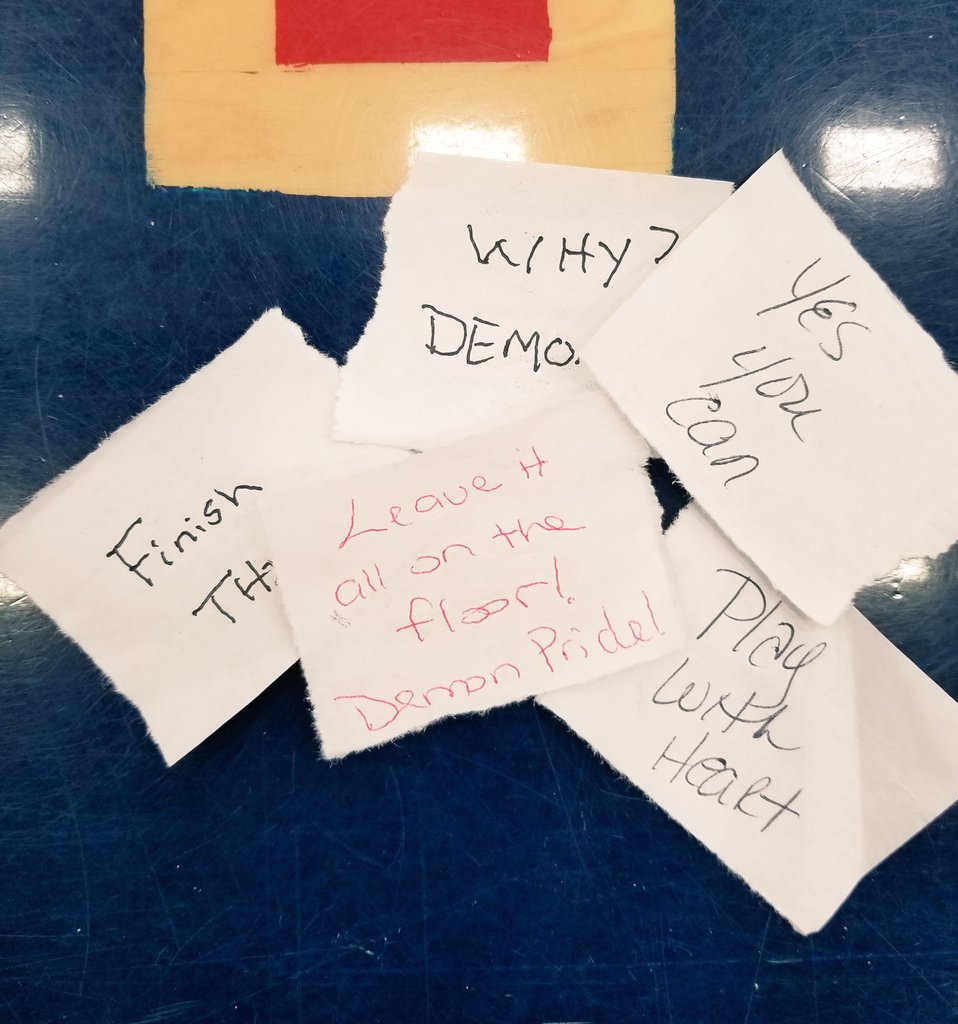 WHY?
DEMO
YES
you
can
Finish
TH
Leave it
all on the
floor!
Demon Pride!
Play
with
Heart